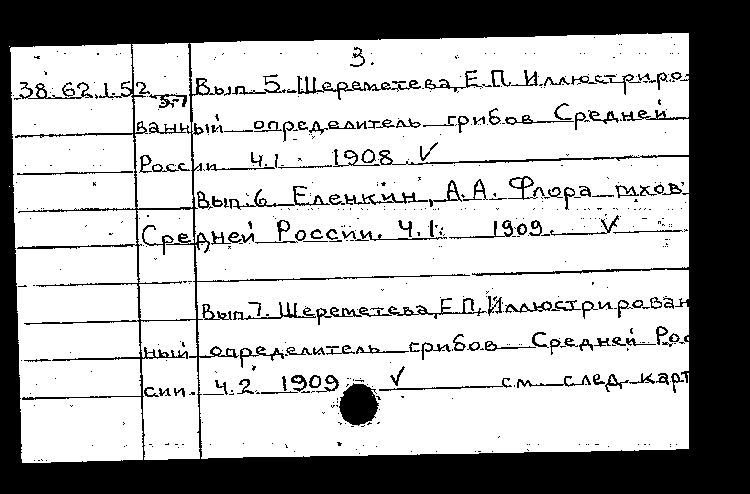 3.
38.62.1.52 Вып. 5. Шереметева, Е.П. Иллюстриро-
ванный определитель грибов Средней
России Ч.1. 1908. √
Вып. 6. Еленкин, А.А. Флора мхов
Средней России. Ч.1. 1909. √
Вып. 7. Шереметева, Е.П. Иллюстрирован
ный определитель грибов Средней Рос
сии. Ч.2 1909 √ см. след. карт